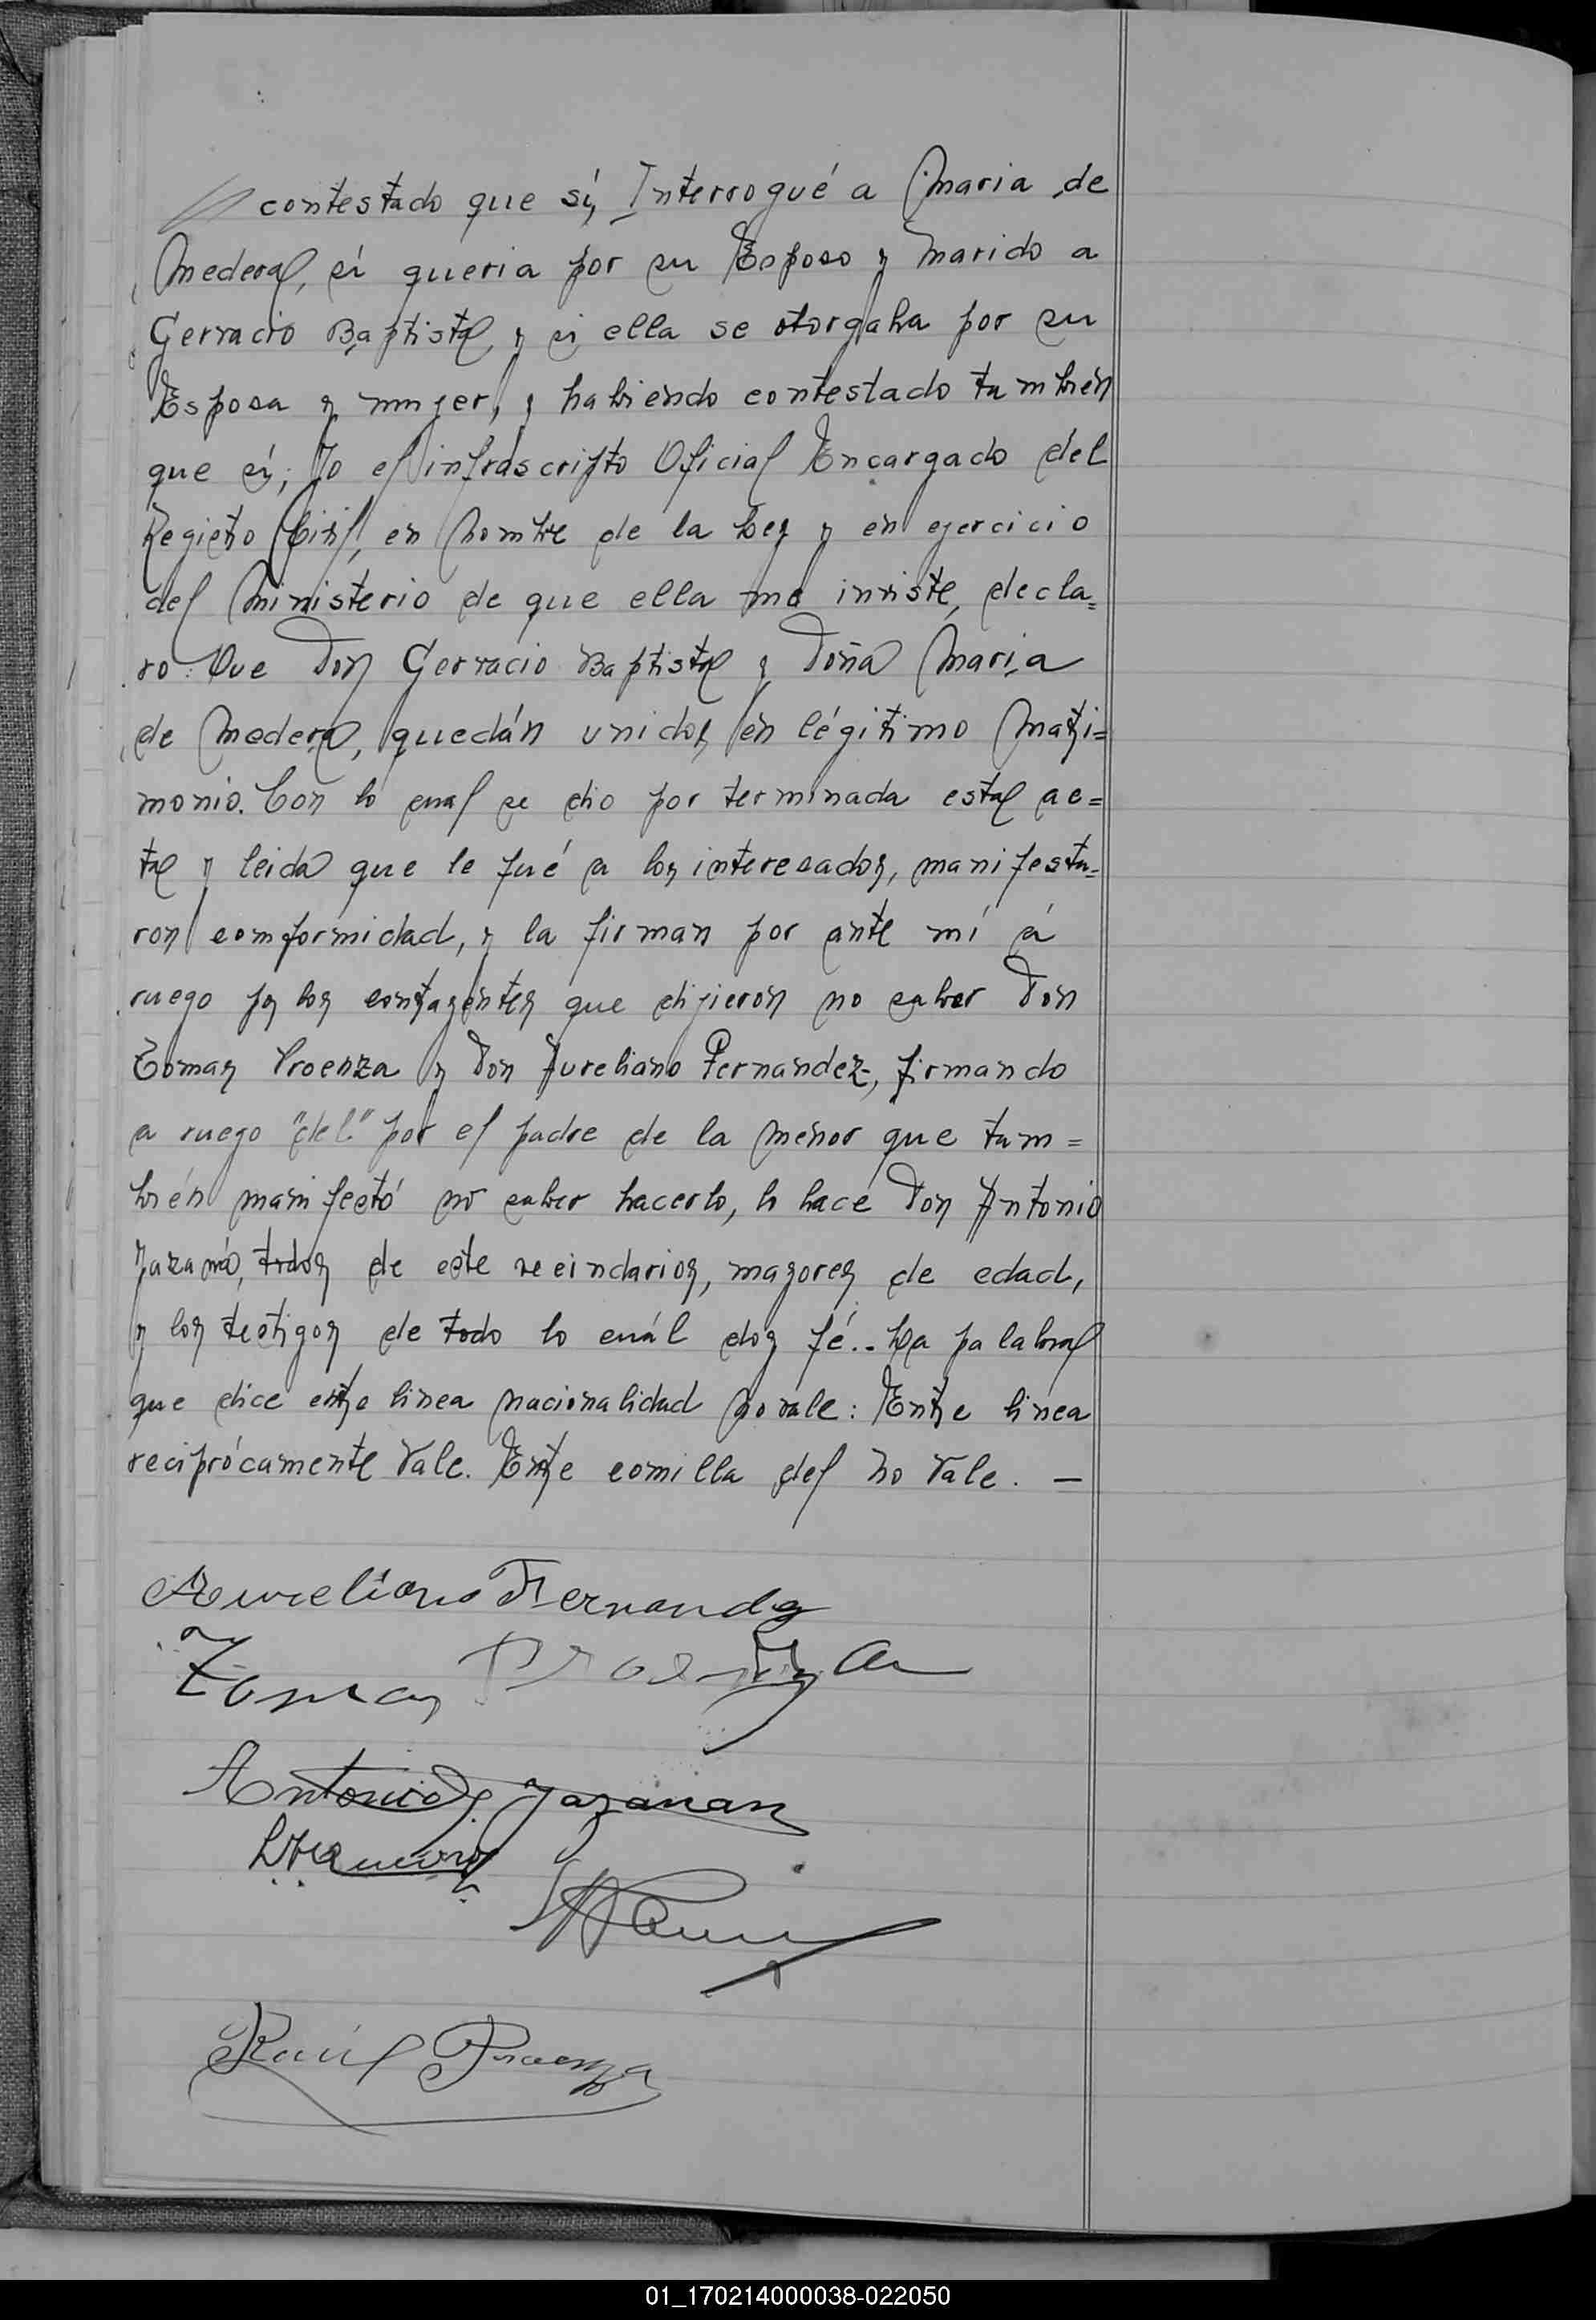 contestado que sí, Interrogué a Maria de
Medera, si queria por su Esposo y Marido a
Gervacio Baptista, y si ella se otorgaba por su
Esposa y mujer, y habiendo contestado tambien
que sí; Yo el infráscripto Oficial Encargado del
Registro Civil, en Nombre de la Ley y en ejercicio
del Ministerio de que ella me inviste, decla=
ro: Que Don Gervacio Baptista y Doña Maria
de Medera, quedán unidos en légitimo Matri=
monio. Con lo cual se dio por terminada esta ac=
ta y leida que le fué a los interesados, manifesta=
ron comformidad, y la firman por ante mí á
ruego por los contrayentes que dijieron no saber Don
Tomas Proenza y Don Aureliano Fernandez, firmando
a ruego "del" por el padre de la menor que tam=
bién manifestó no saber hacerlo, lo hace Don Antonio
todos de este vecindarios, mayores de edad,
y los testigos de todo lo cuál doy fé.. La palabra
que dice entre linea nacionalidad no vale: Entre linea
reciprócamente vale. Entre comilla del no vale. —
Aureliano Fernandez
Tomas Proenza
Antonio
Raúl Proenza
01_170214000038-022050